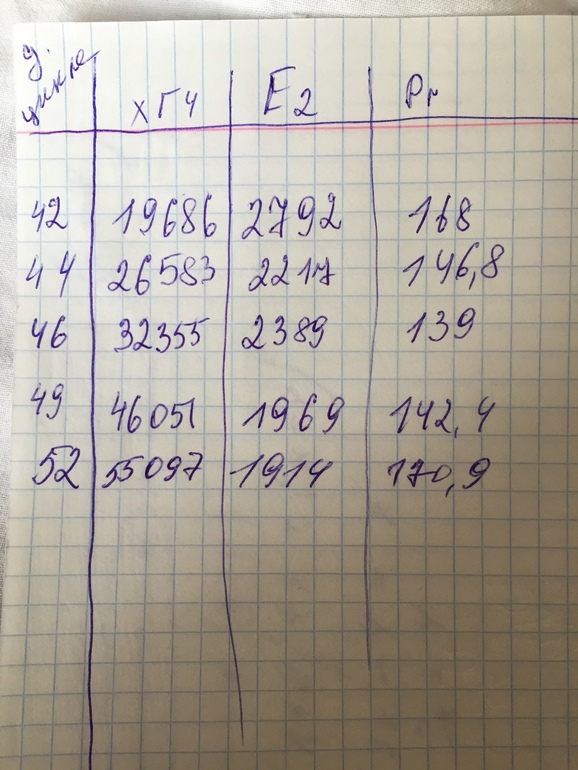 д. цикла хГЧ E2 Pr
42 19686 2792 168
44 26583 2217 146,8
46 32355 2389 139
49 46051 1969 142,4
52 55097 1914 170,9